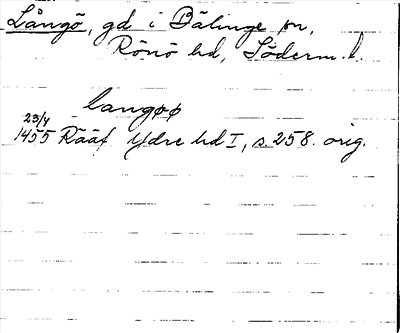 Långö, gd i Bälinge sn,
Rönö hd, Söderm. l.
langøø
23/4
1455 Rääf Ydre hd I, s. 258. orig.